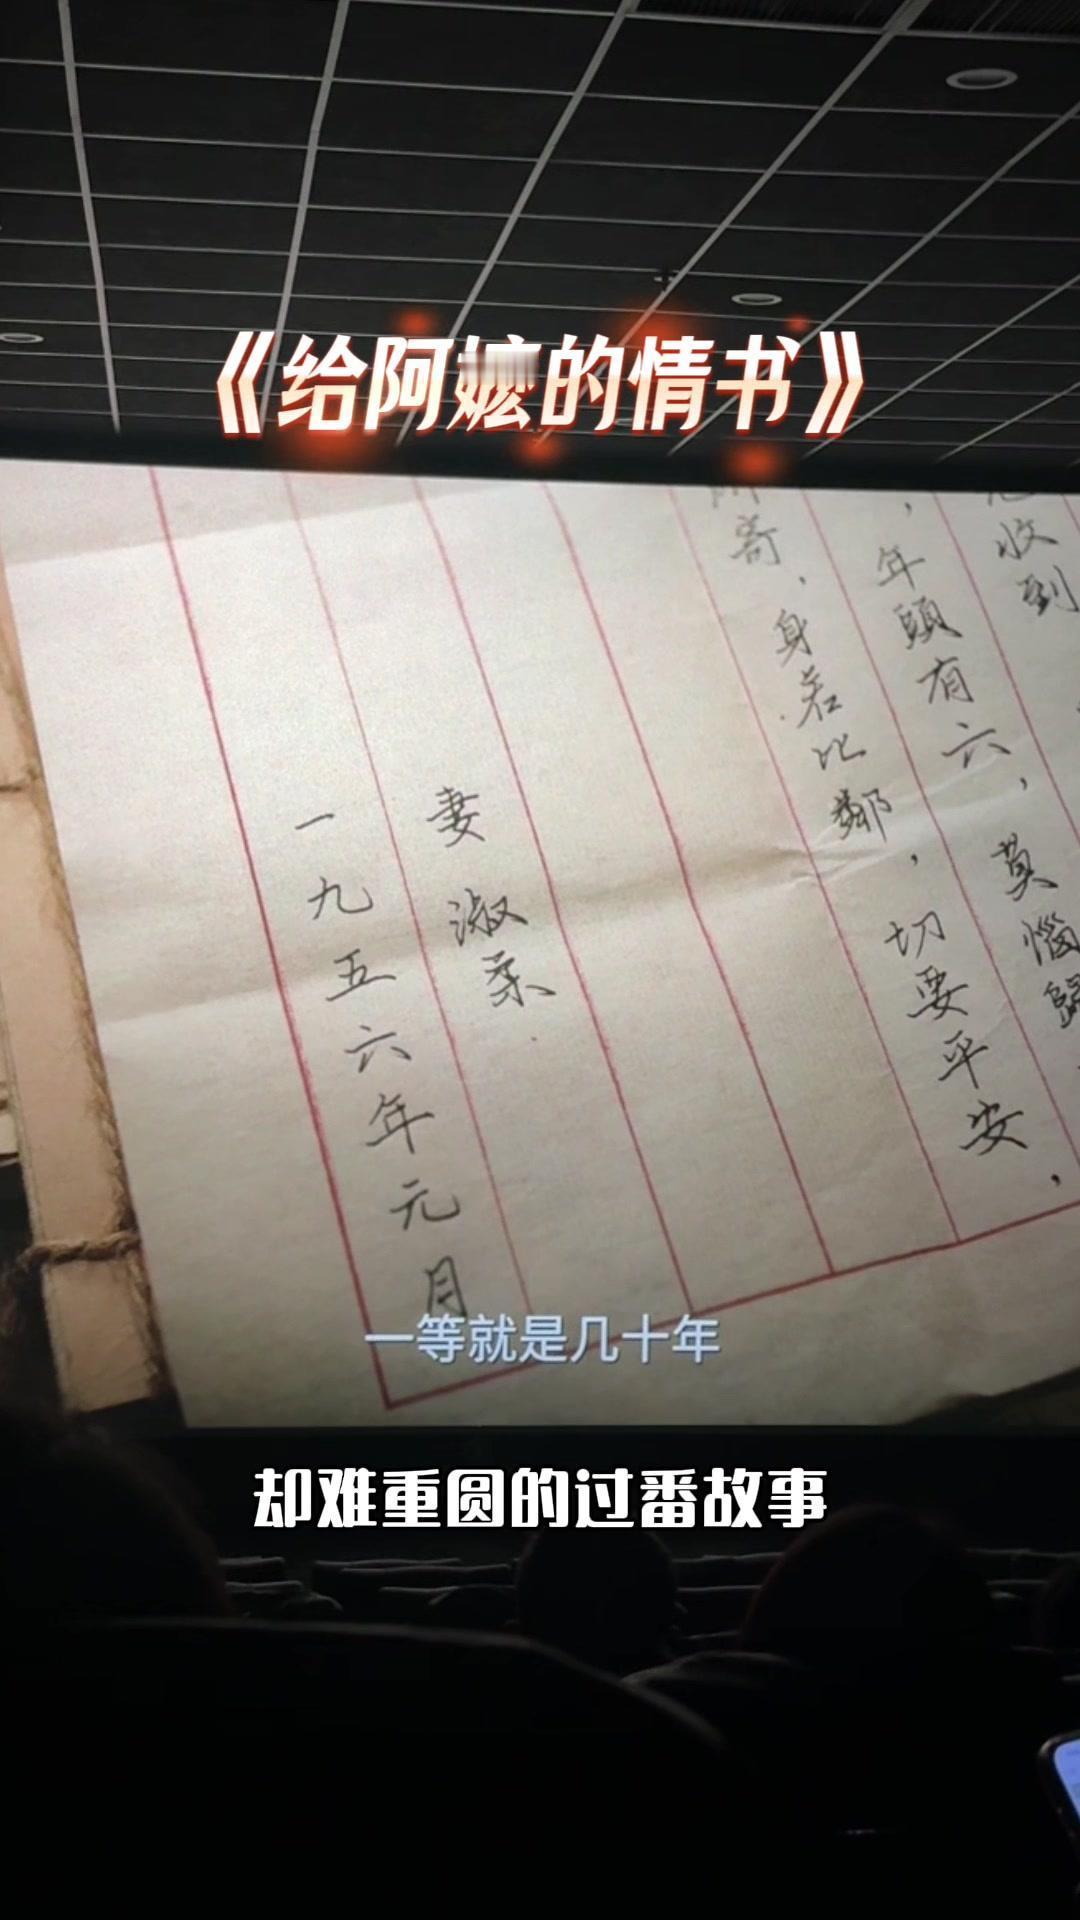 《给阿嬷的情书》
收到
，年頭有六，莫惱
寄，身若比鄰，切要平安，
妻 淑柔
一九五六年元月
一等就是几十年
却难重圆的过番故事